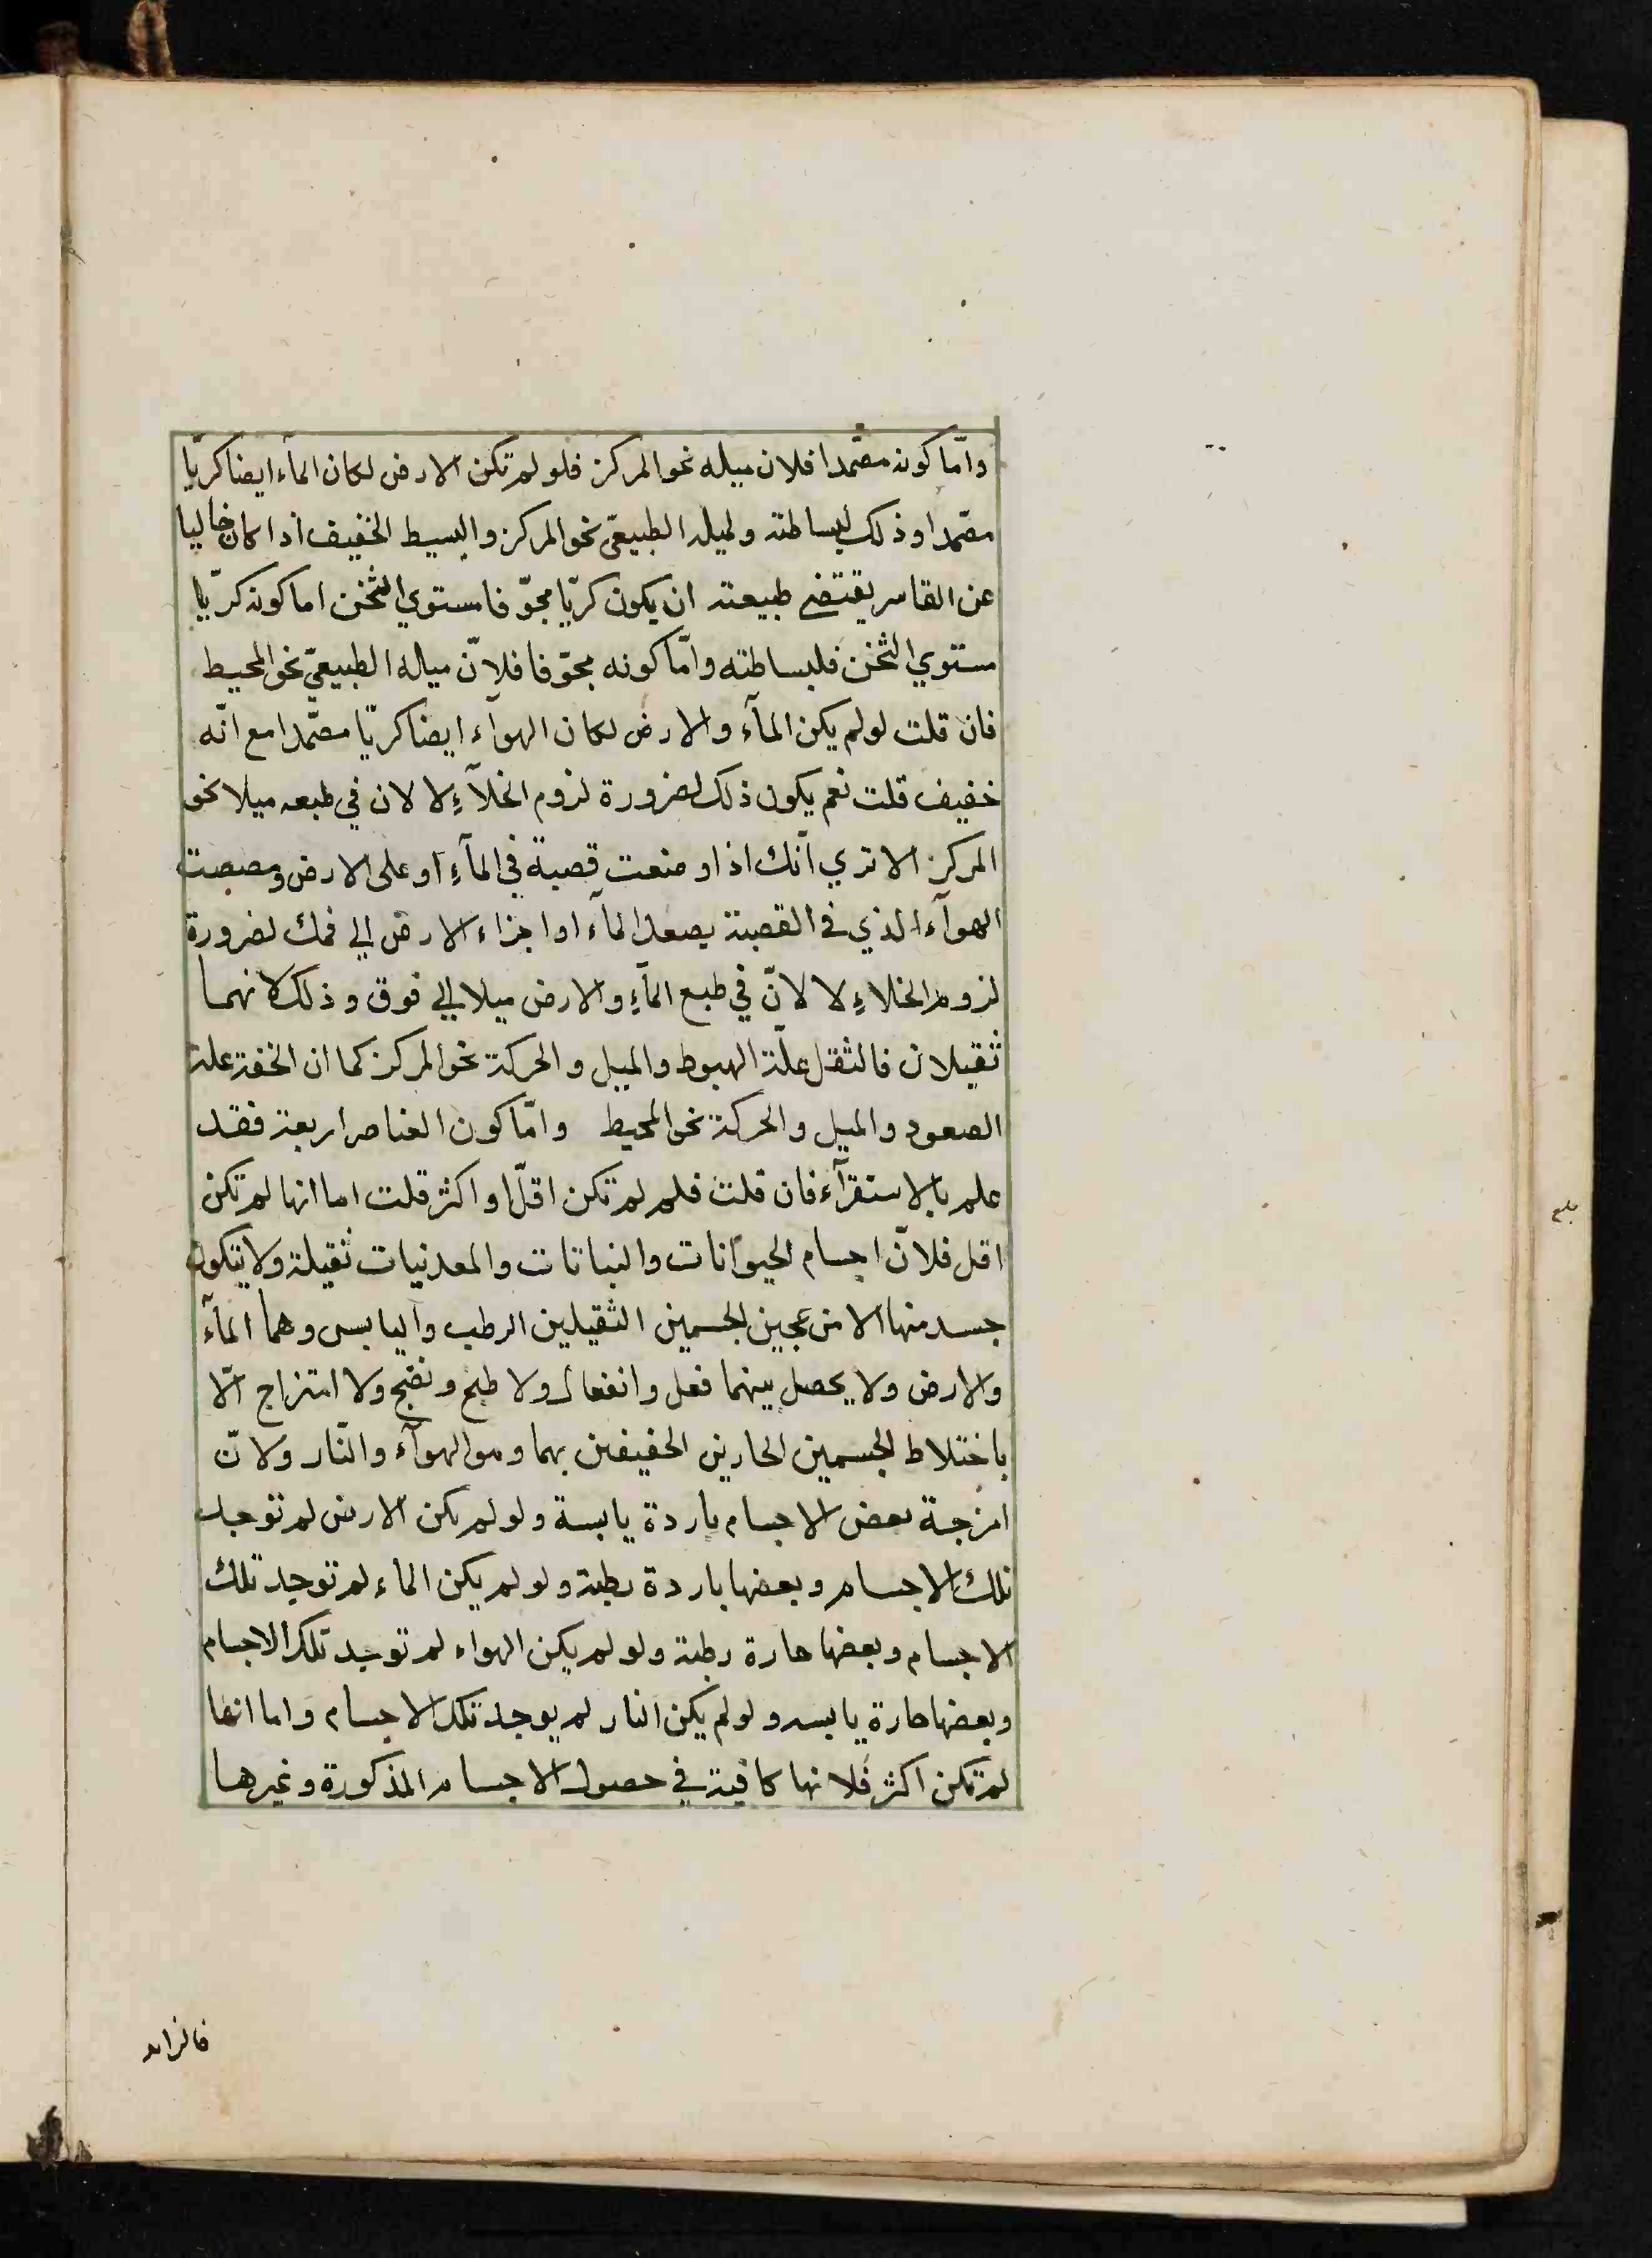 وامّا كونه مصمّدا فلان ميله نحو المركز فلو لم تكن الارض لكان المآء ايضا كريّا
مصمّدا وذلك لبساطته ولميله الطبيعيّ نحو المركز والبسيط الخفيف اذا كان خاليا
عن القاسر يقتضي طبيعته ان يكون كريّا مجوّفا مستوي الثخن اما كونه كريّا
مستوي الثخن فلبساطته وامّا كونه مجوّفا فلانّ ميله الطبيعيّ نحو المحيط
فان قلت لو لم يكن المآء والارض لكان الهوآء ايضا كريّا مصمّدا مع انّه
خفيف قلت نعم يكون ذلك لضرورة لزوم الخلآءِ لا لان في طبعه ميلا نحو
المركز الا تري انّك اذا وضعت قصبة في المآءِ او علي الارض ومصصت
الهوآء الذي في القصبة يصعد المآء او اجزاء الارض الي فمك لضرورة
لزوم الخلاءِ لا لانّ في طبع المآءِ والارض ميلا الي فوق وذلك لانهما
ثقيلان فالثقل علّة الهبوط والميل والحركة نحو المركز كما ان الخفة علة
الصعود والميل والحركة نحو المحيط وامّا كون العناصر اربعة فقد
علم بالاستقرآء فان قلت فلم لم تكن اقلّ او اكثر قلت اما انها لم تكن
اقل فلانّ اجسام الحيوانات والنباتات والمعدنيات ثقيلة ولا يتكون
جسد منها الا من عجين الجسمين الثقيلين الرطب واليابس وهما المآء
والارض ولا يحصل بينهما فعل وانفعال ولا طبخ ونضج ولا امتزاج الّا
باختلاط الجسمين الحارين الخفيفين بهما وهو الهوآء والنّار ولانّ
امزجة بعض الاجسام باردة يابسة ولو لم يكن الارض لم توجد
تلك الاجسام وبعضها باردة رطبة ولو لم يكن الماء لم توجد تلك
الاجسام وبعضها حارة رطبة ولو لم يكن الهواء لم توجد تلك الاجسام
وبعضها حارة يابسه ولو لم يكن النار لم يوجد تلك الاجسام واما انها
لم تكن اكثر فلانها كافية في حصول الاجسام المذكورة وغيرها
فالزايد